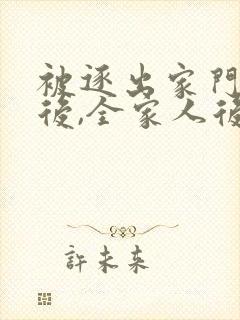 被逐出家門
後,全家人後
許未來